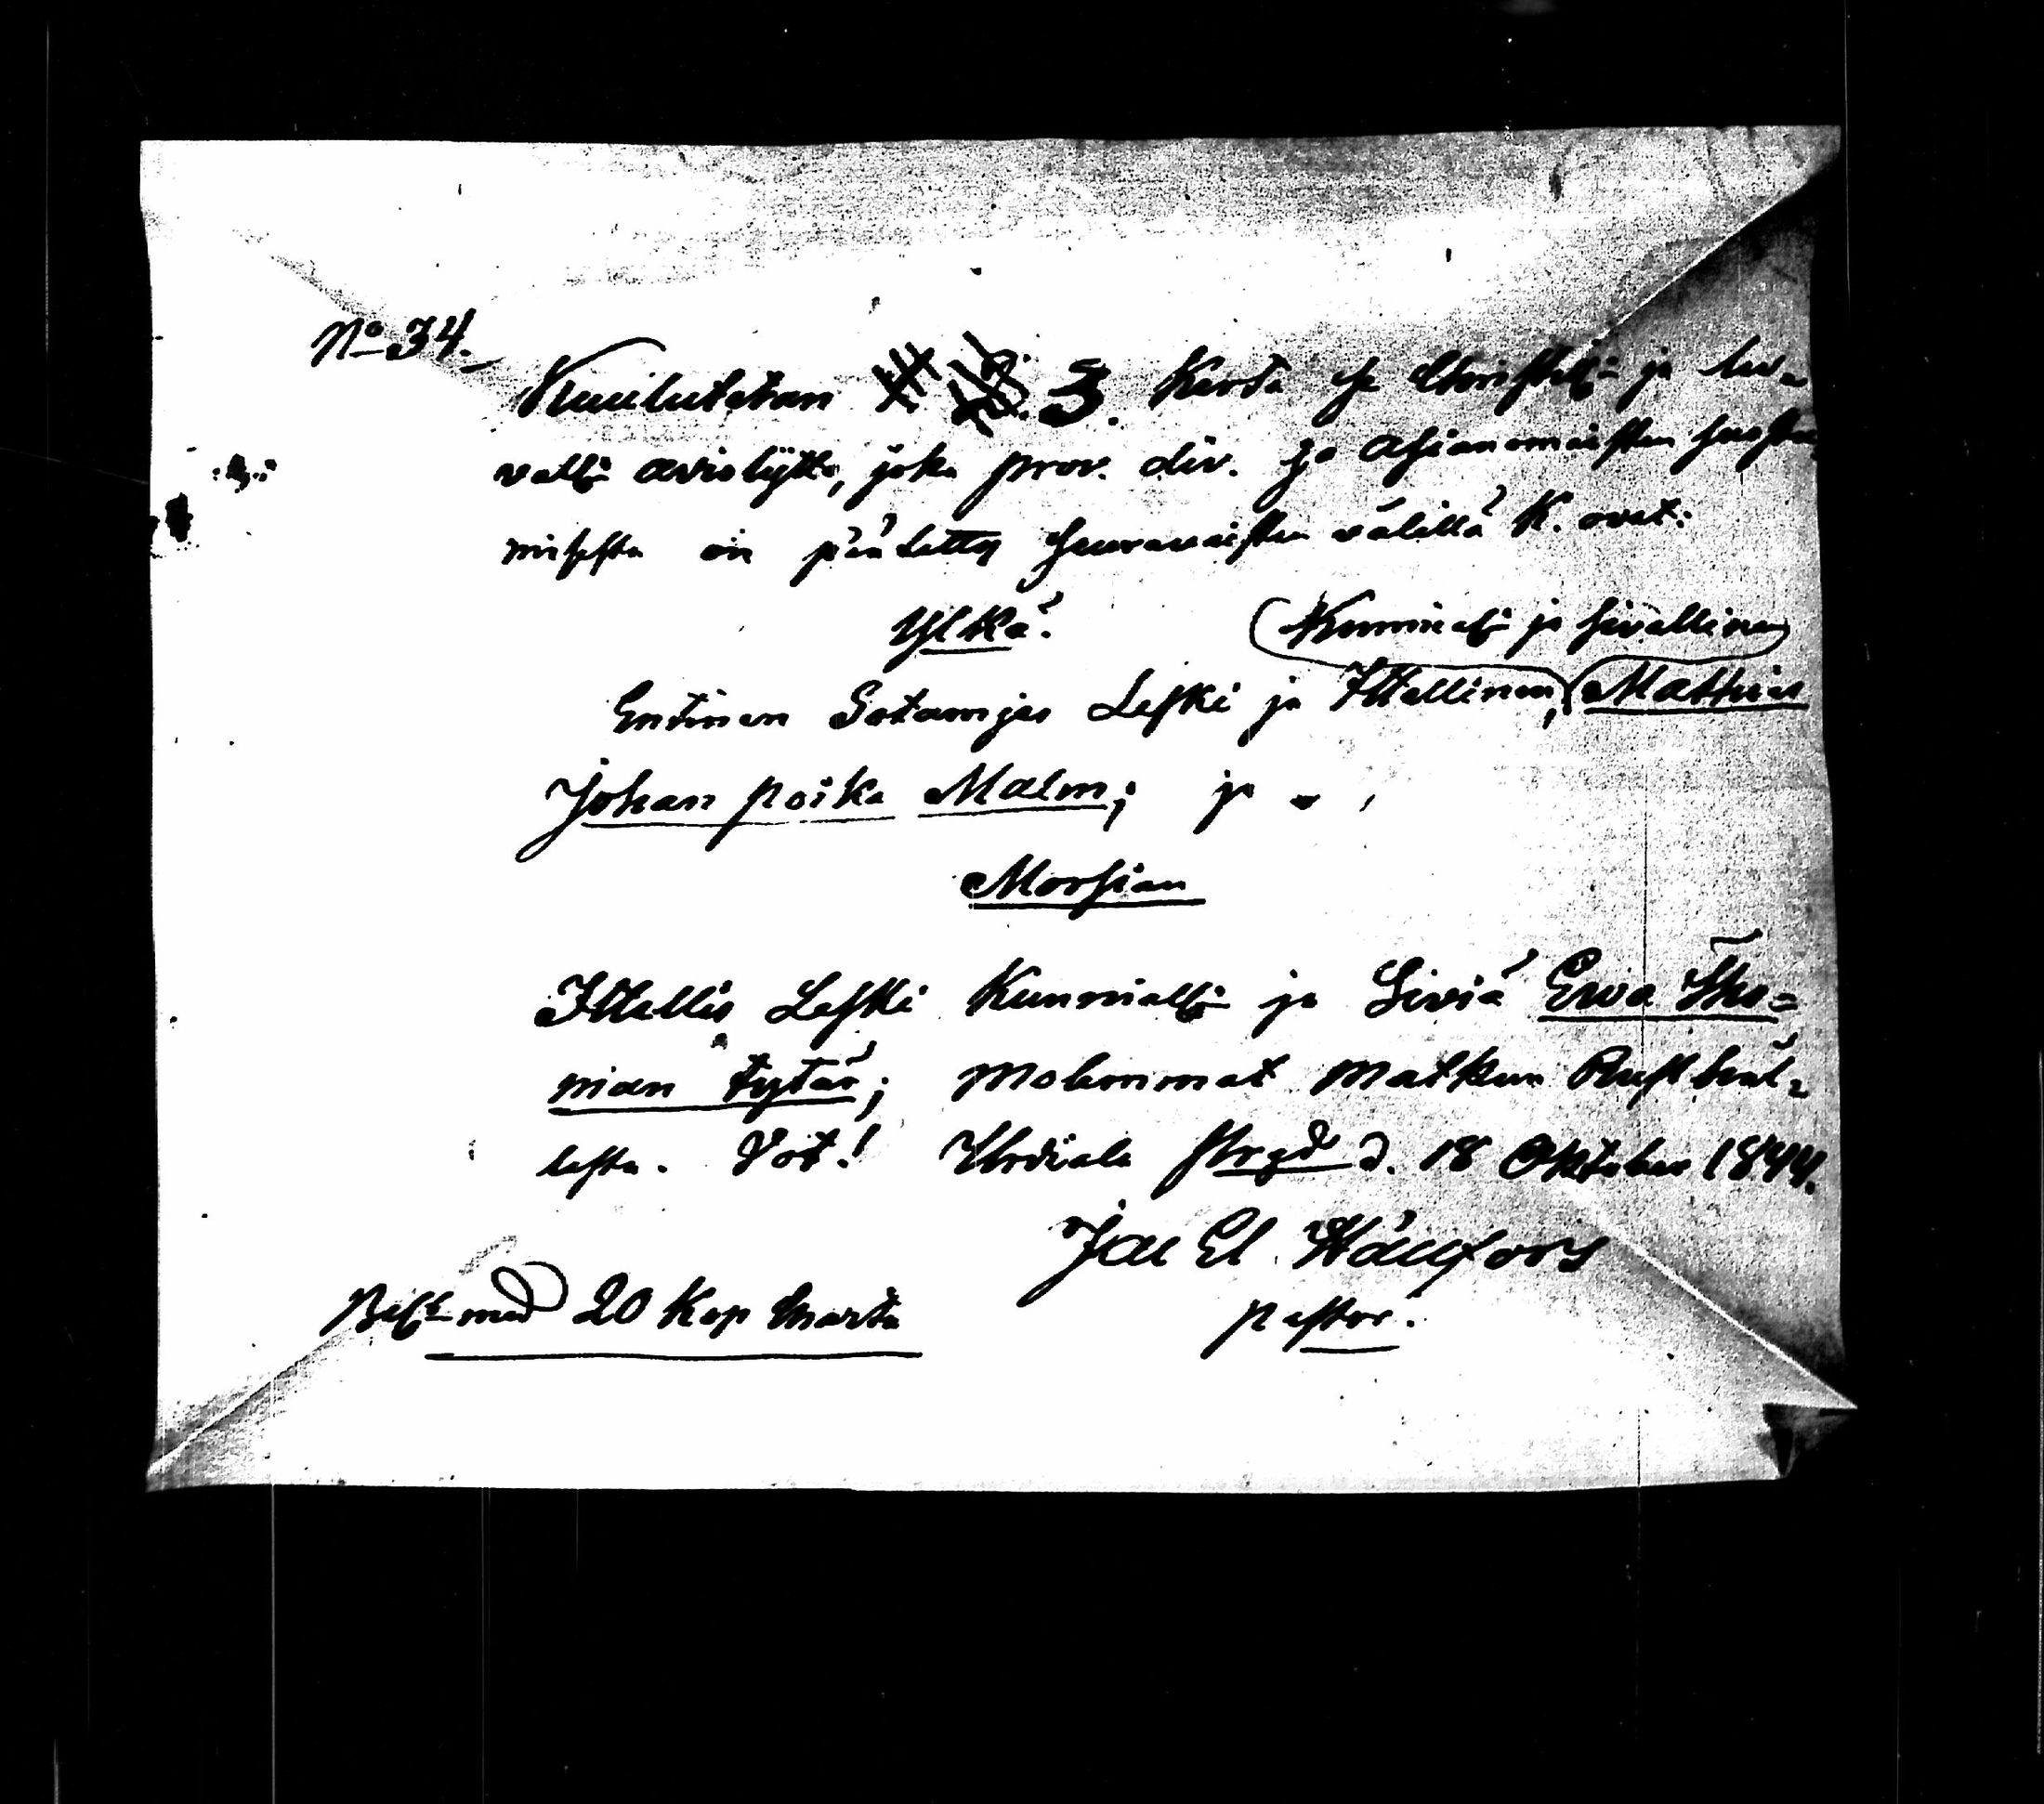 No 34.
Kuulutetan 3. Kerta se Christel: ja lu-
vall: avioliitto, joka prov. div. ja asianomaisten suostu-
misesta on päätetty seuravaisten välillä K. ovat:
Ylkä. Kunniall: ja siviällinen
Entinen Sotamjes Leski ja Ittellinen, Matthias
Johan poika Malm; ja
Morsian
Ittellis Leski Kunniall: ja Siviä Ewa Tho-
man tytär; Molemmat Matkun Rusthål-
lista. Urdiala Prgd d. 18 Oktober 1844.
Jac El Hällfors
pastor.
med 20 Kop Charta